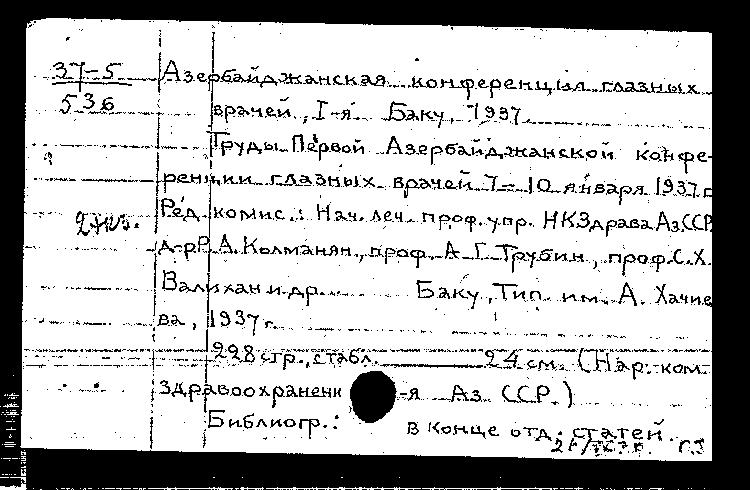 37-5
536
Азербайджанская конференция глазных
врачей, I-я. Баку, 1937.
Труды Первой Азербайджанской конфе-
ренции глазных врачей 7-10 января 1937 г.
Ред. комис.: Нач. леч. проф. упр. НКЗдрава Аз.ССР
д-р Р. А. Колманян, проф. А. Г. Трубин, проф. С. Х.
2 экз.
Валихан и др. Баку, Тип. им. А. Хачие
ва, 1937 г.
228 стр., с табл. 24 см. (Нар. ком.
здравоохранени -я Аз ССР.)
Библиогр.: в конце отд. статей.